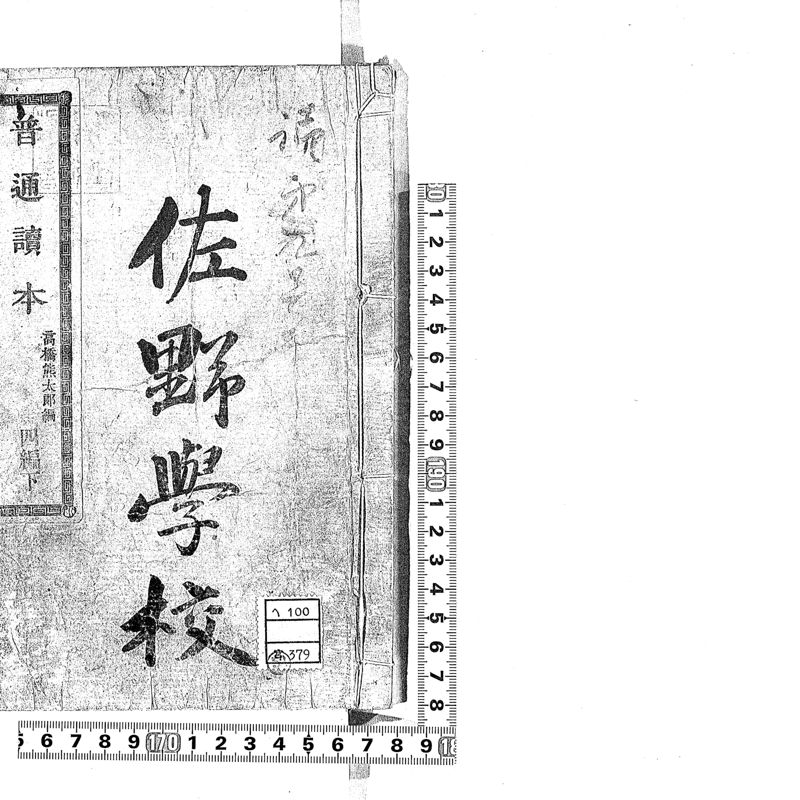 佐野學校
普通讀本
高橋熊太郎編
四編下
ヘ 100
379
0 1 2 3 4 5 6 7 8 9 190 1 2 3 4 5 6 7 8
5 6 7 8 9 170 1 2 3 4 5 6 7 8 9 18